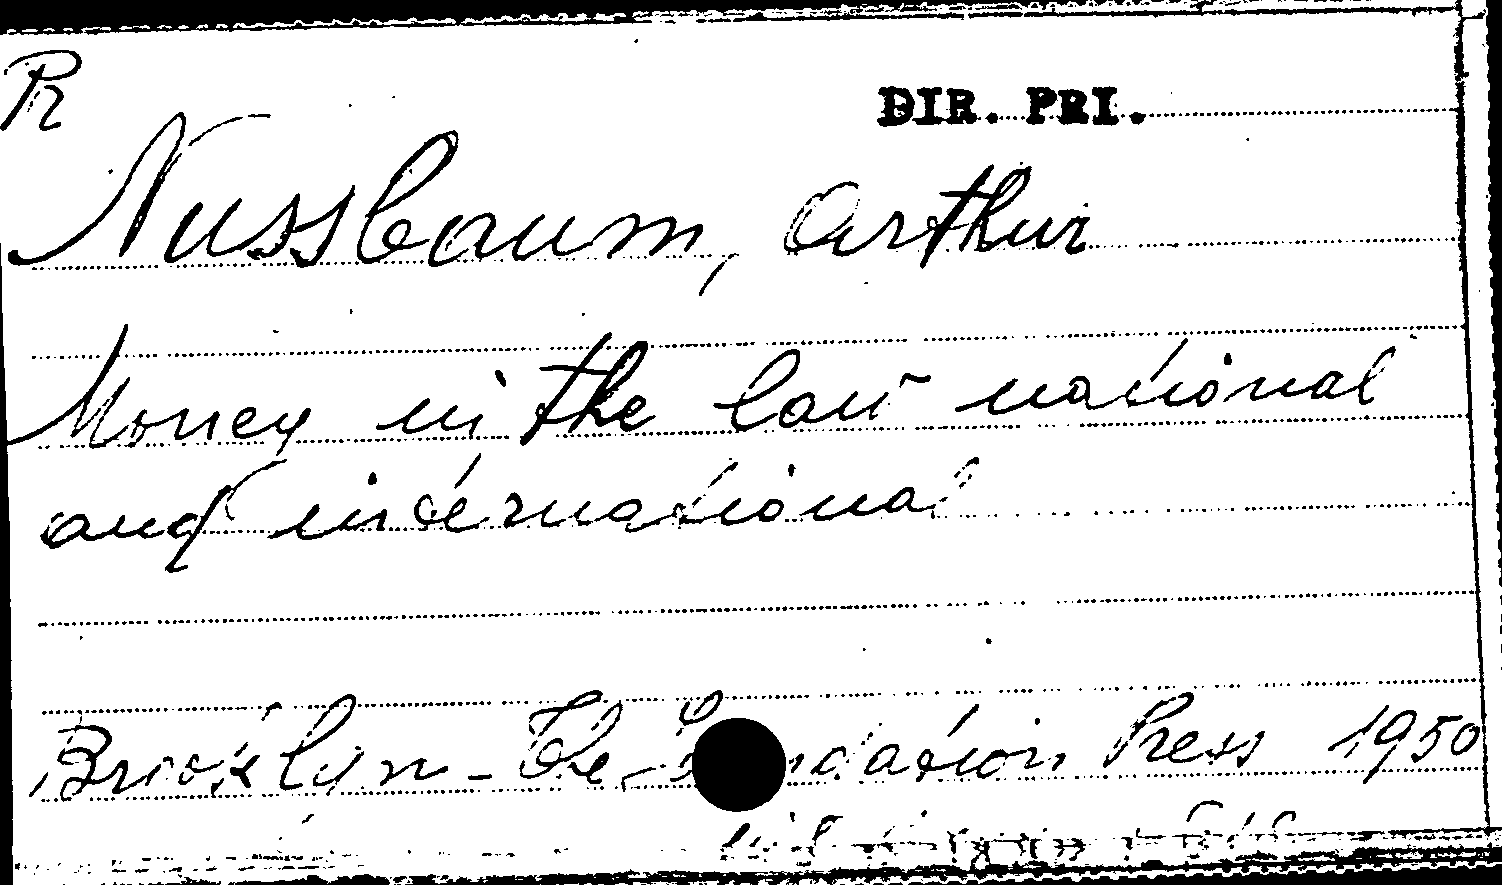 R
DIR. PRI.
Nussbaum, Arthur
Money in the law national
and international
Brooklyn - The Foundation Press 1950